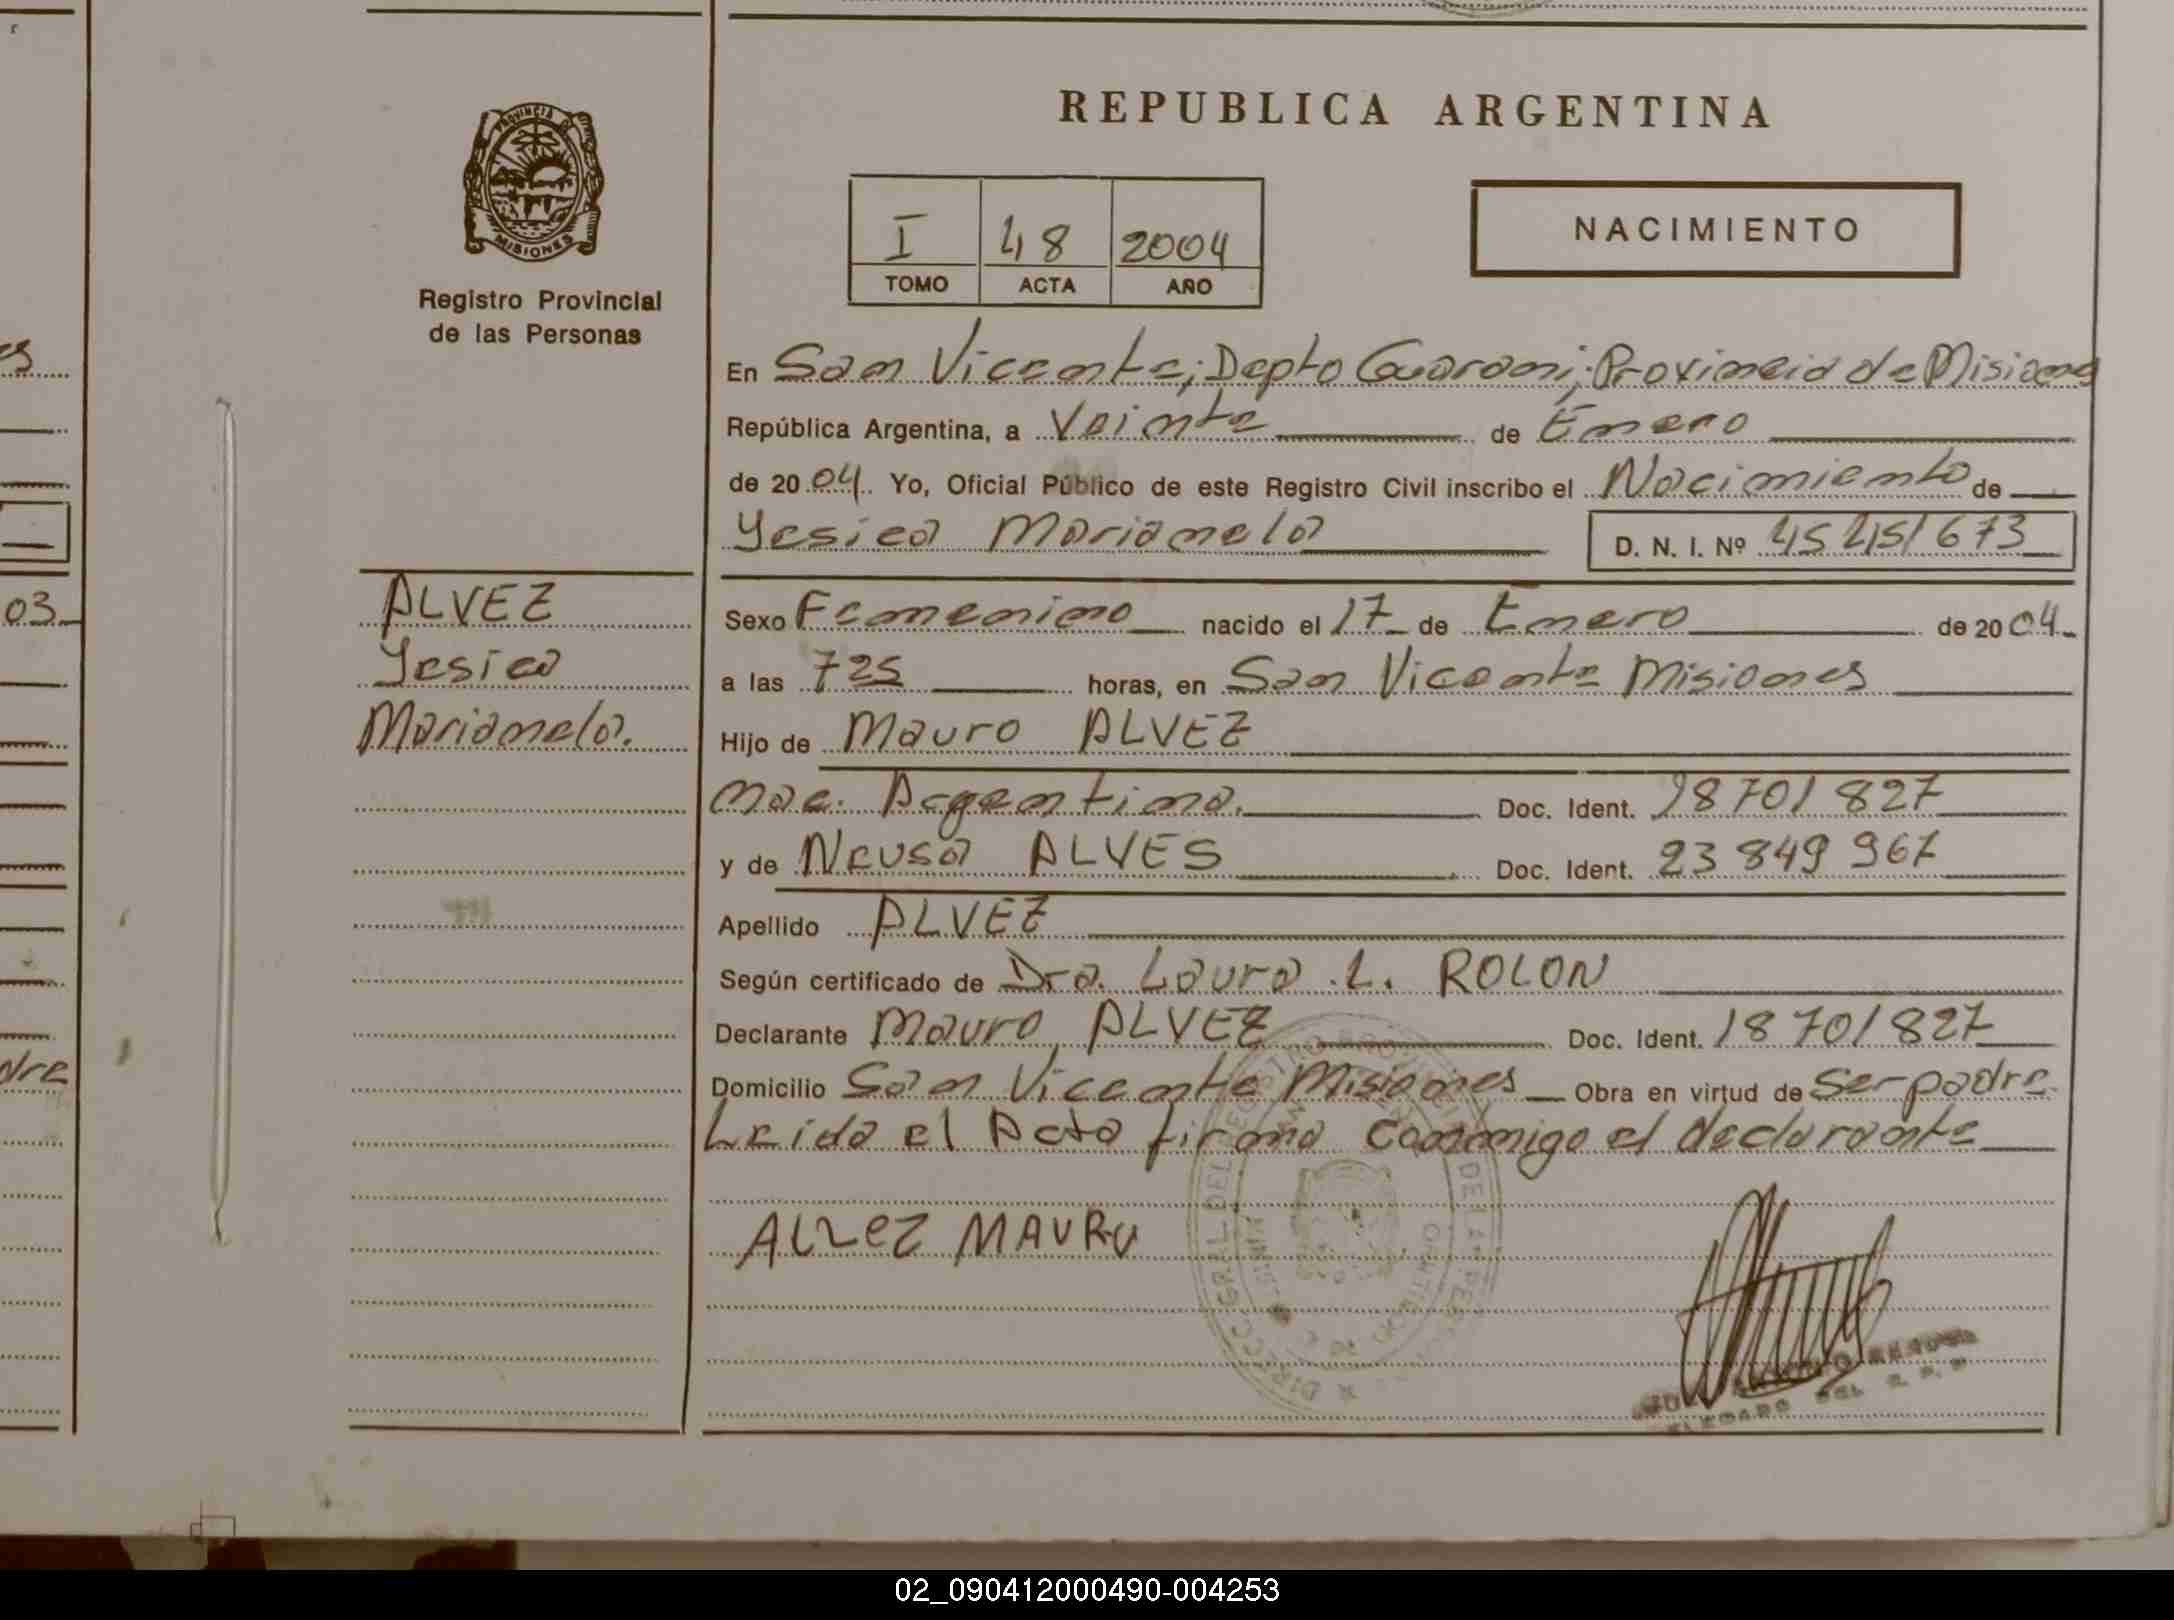 REPUBLICA ARGENTINA
PROVINCIA DE
MISIONES
Registro Provincial
de las Personas
I 48 2004
TOMO ACTA AÑO
NACIMIENTO
En San Vicente; Depto Guarani; Provincia de Misiones
República Argentina, a Veinte de Enero
de 2004 Yo, Oficial Público de este Registro Civil inscribo el Nacimiento de
Yesica Marianela D. N. I. Nº 45 245/673
ALVEZ
Yesica
Marianela.
Sexo Femenino nacido el 17 de Enero de 2004
a las 725 horas, en San Vicente Misiones
Hijo de Mauro ALVEZ
Nac. Argentina. Doc. Ident. 18701827
y de Neusa ALVES Doc. Ident. 23 849 967
Apellido ALVEZ
Según certificado de Dra. Laura L. ROLON
Declarante Mauro ALVEZ Doc. Ident. 18701827
Domicilio San Vicente Misiones Obra en virtud de Ser padre
Leida el Acta firma conmigo el declarante
ALVEZ MAURO
03
dre
es
02_090412000490-004253